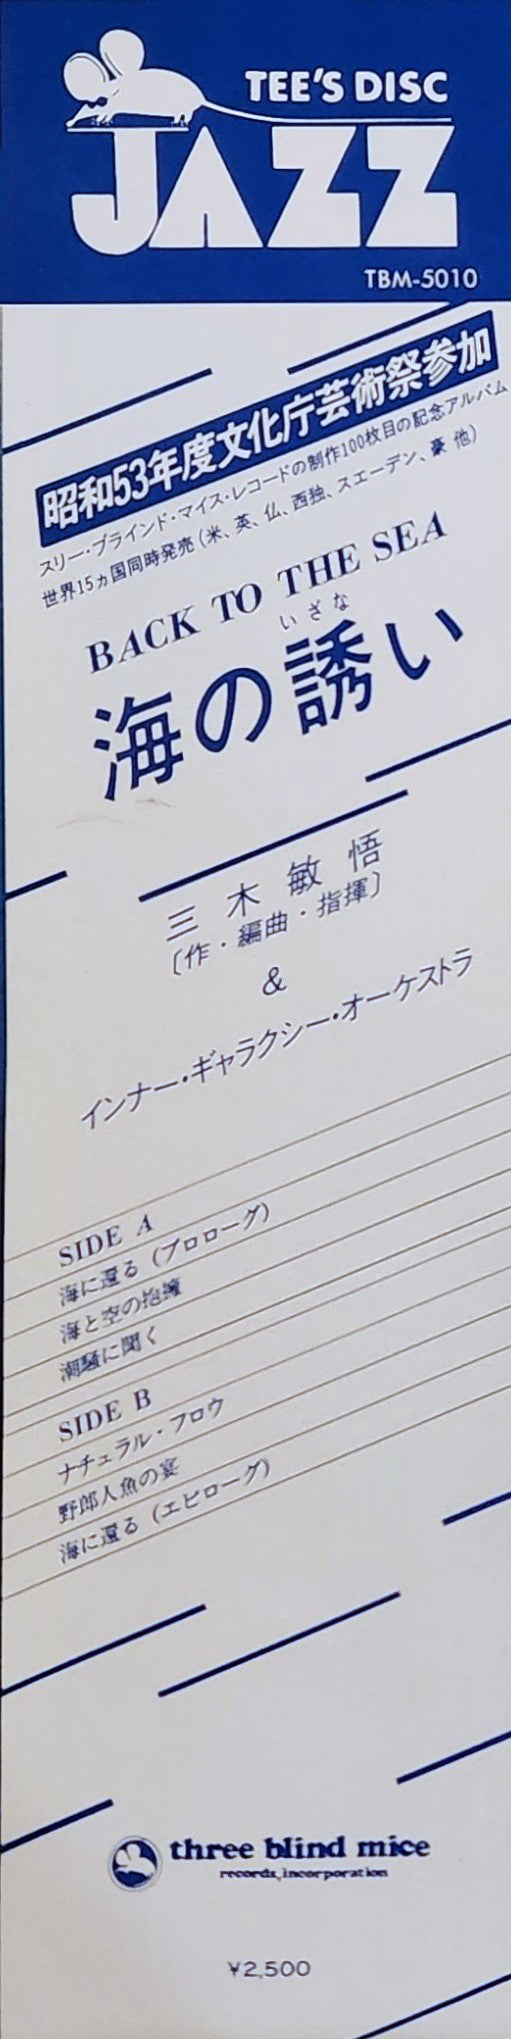 TEE'S DISC
JAZZ
TBM-5010
昭和53年度文化庁芸術祭参加
スリー・ブラインド・マイス・レコードの制作100枚目の記念アルバム
世界15ヵ国同時発売(米、英、仏、西独、スエーデン、豪 他)
BACK TO THE SEA
いざな
海の誘い
三木敏悟
〔作・編曲・指揮〕
&
インナー・ギャラクシー・オーケストラ
SIDE A
海に還る(プロローグ)
海と空の抱擁
潮騒に聞く
SIDE B
ナチュラル・フロウ
野郎人魚の宴
海に還る(エピローグ)
three blind mice
records, incorporation
¥2,500